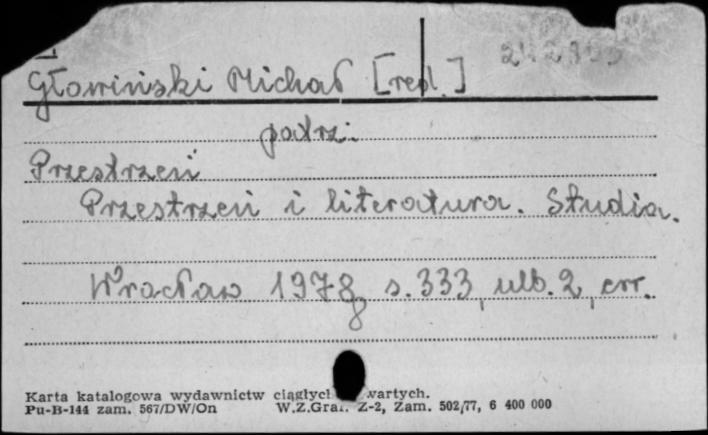 Głowiński Michał [red.]
patrz:
Przestrzeń
Przestrzeń i literatura. Studia.
Wrocław 1978, s. 333, ulb. 2, err.
Karta katalogowa wydawnictw ciągłych wartych.
Pu-B-144 zam. 567/DW/On W.Z.Graf. Z-2, Zam. 502/77, 6 400 000